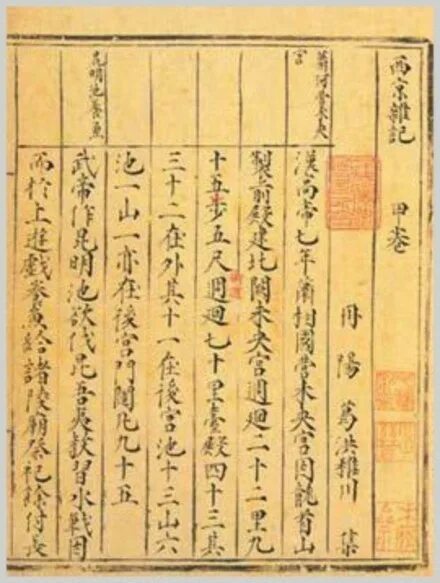 西京雜記 甲卷
丹陽 葛洪稚川 集
蕭何營未央
宮
漢高帝七年蕭相國營未央宮因龍首山
製前殿建北闕未央宮週廻二十二里九
十五步五尺週廻七十里臺殿四十三其
三十二在外其十一在後宮池十三山六
池一山一亦在後宮門闥凡九十五
昆明池養魚
武帝作昆明池欲伐昆吾夷教習水戰因
而於上遊戲養魚給諸陵廟祭祀餘付長